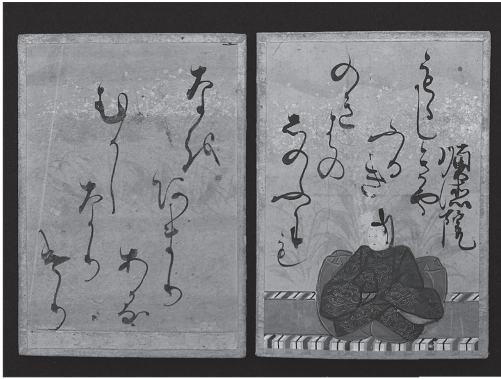 順徳院
もゝしきや
ふるき
のきはの
しのふにも
なを
あまり
ある
むかし
なり
けり